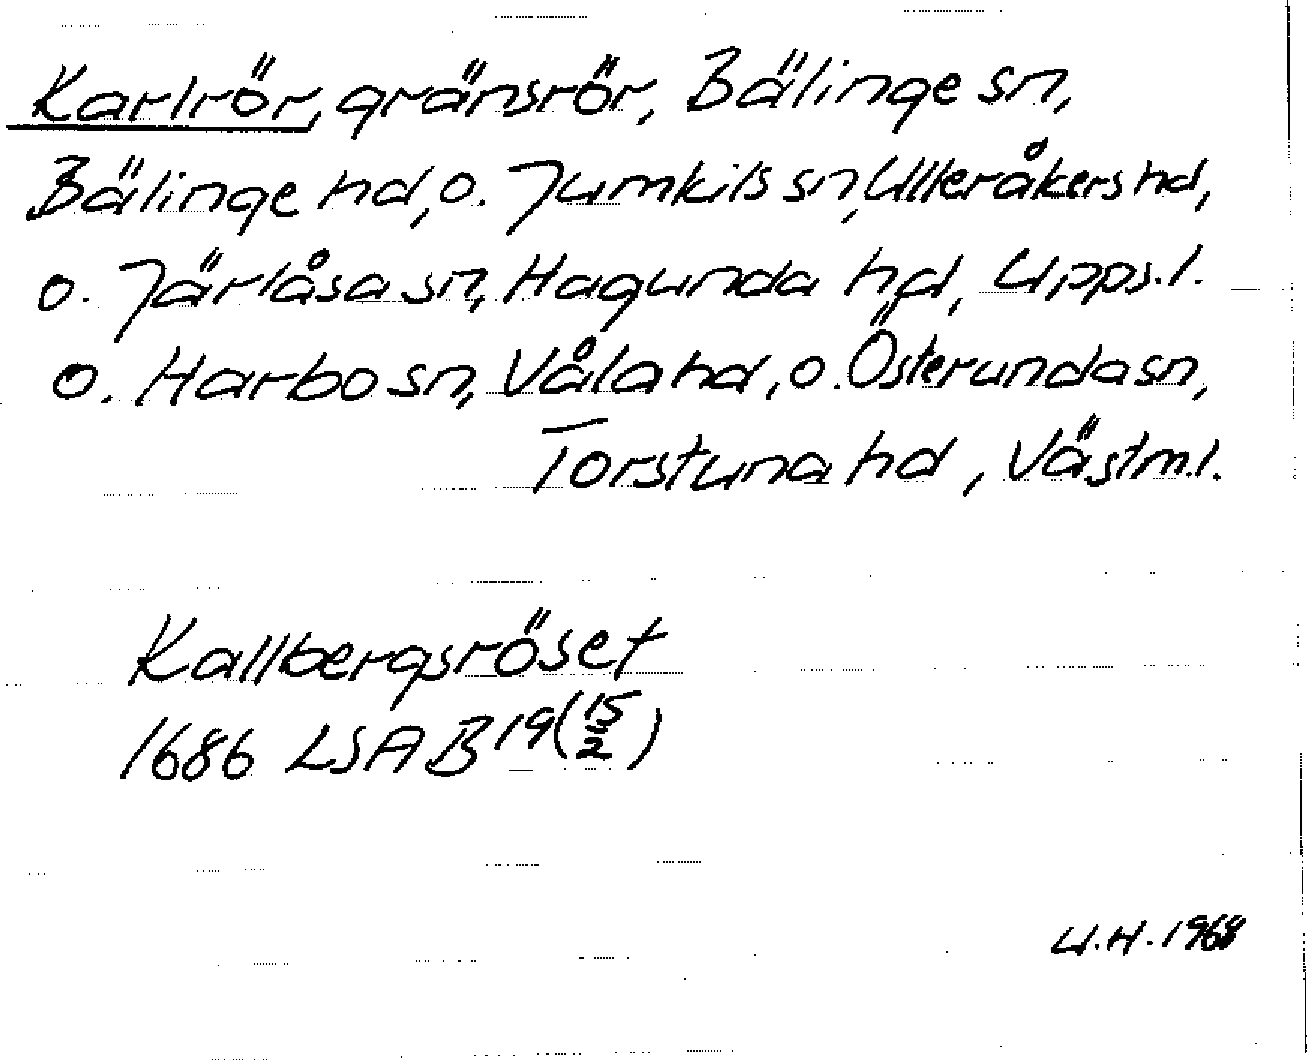 Karlrör, gränsrör, Bälinge sn,
Bälinge hd, o. Jumkils sn, Ulleråkers hd,
o. Järlåsa sn, Hagunda hd, Upps.l.
o. Harbo sn, Våla hd, o. Österunda sn,
Torstuna hd, Västm.l.
Kallbergsröset
1686 LSA B 19 (15/2)
U.H. 1968